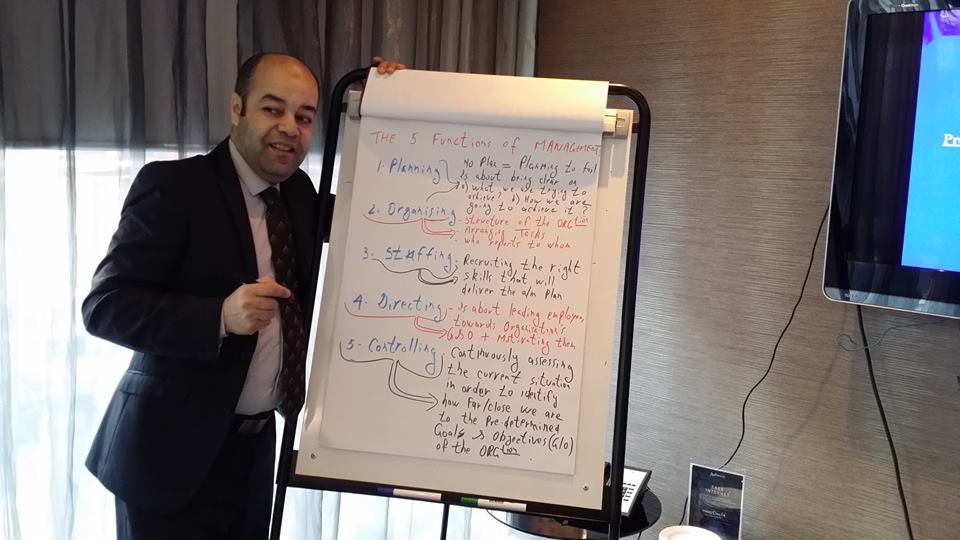 THE 5 Functions of MANAGEMENT
1. Planning
No Plan = Planning to fail
Is about being clear on
a) what we are trying to
achieve? b) How we are
going to achieve it?
2. Organising
- Structure of the ORGtion
- Arranging Tasks
- who reports to whom
3. Staffing
Recruiting the right
skills that will
deliver the a/m Plan
4. Directing
- Is about leading employee,
towards Organisation's
G&O + Motivating them
5. Controlling
Continuously assessing
the current situation
in order to identify
how far/close we are
to the Pre-determined
Goals & Objectives (G/O)
of the ORGtion.
Pr
INTERNET